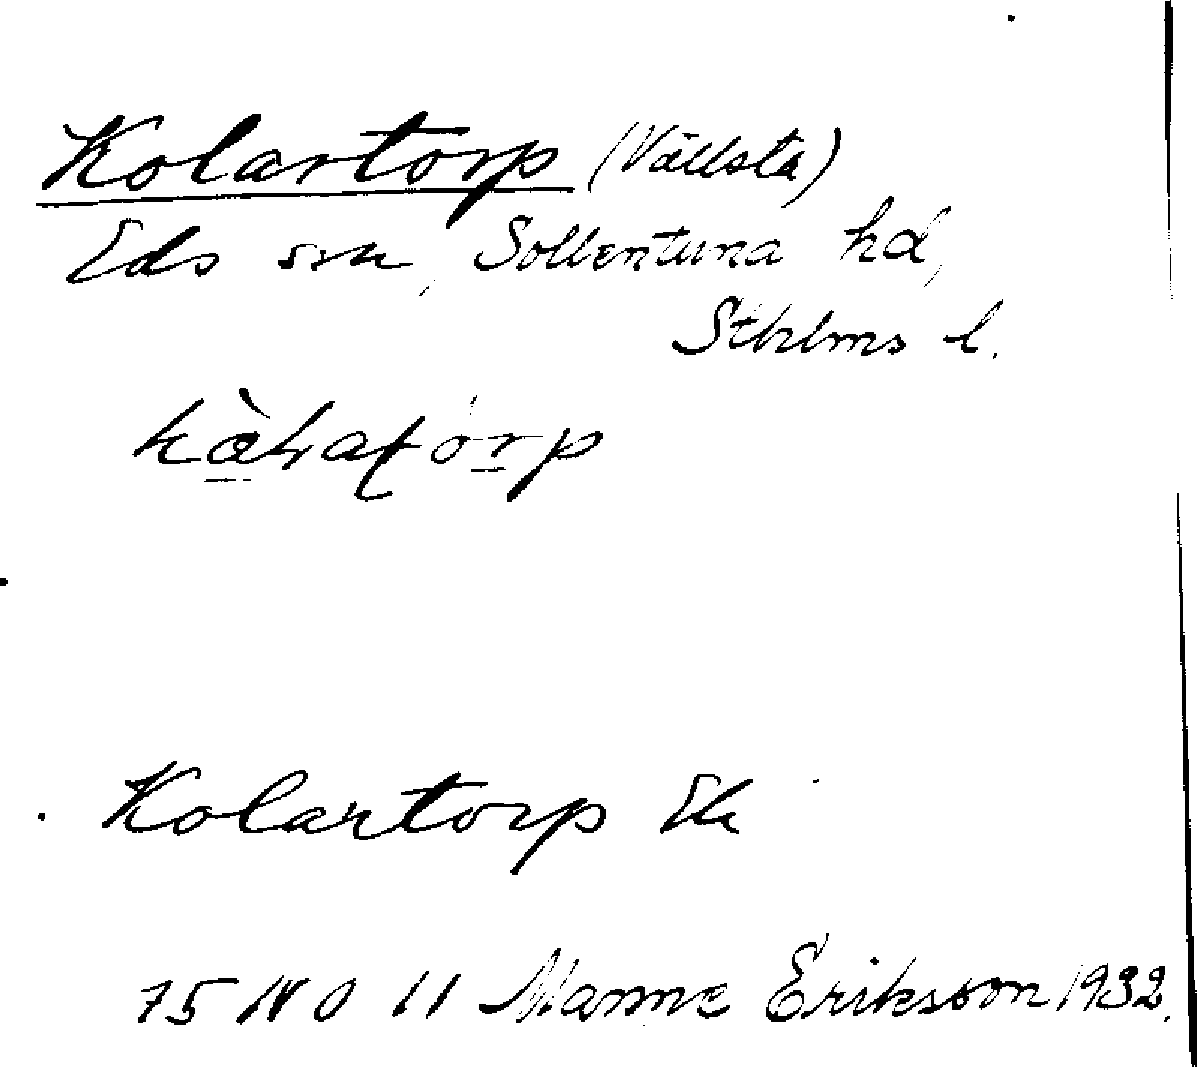 Kolartorp (Vällsta)
Eds sn, Sollentuna hd,
Sthlms l.
Kolartorp Ek
75 NO 11 Manne Eriksson 1932.